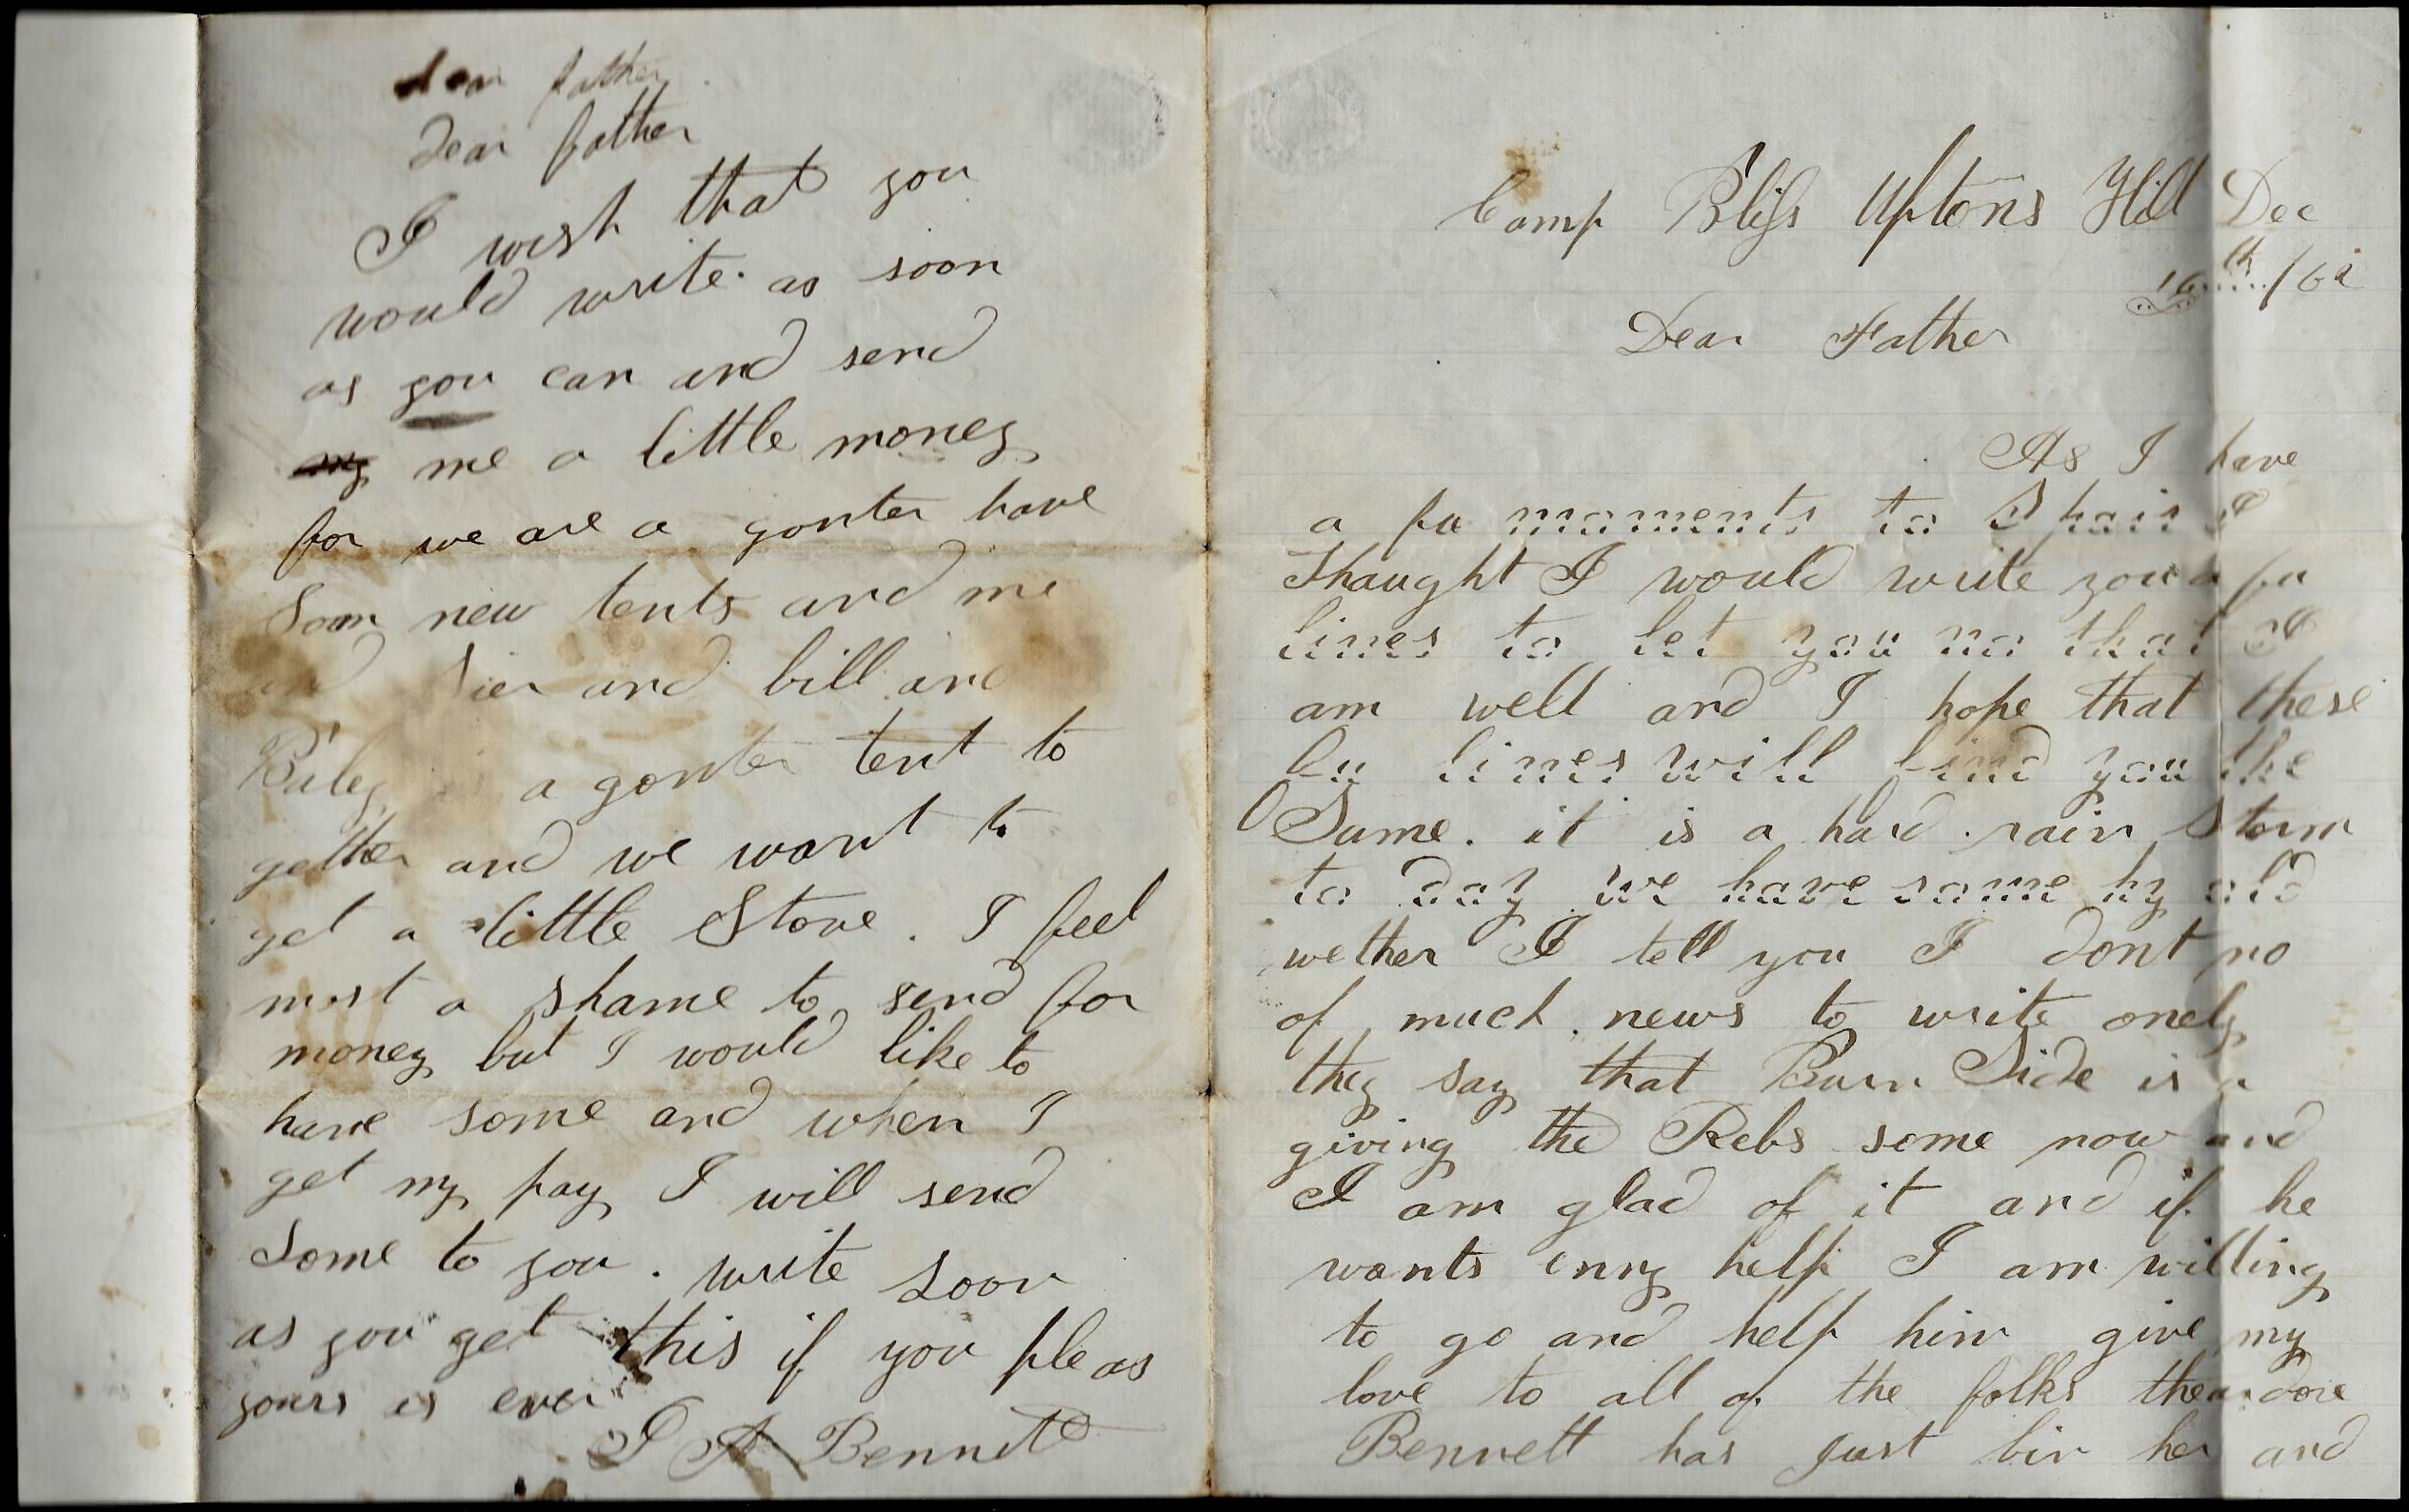 dear father
dear father
I wish that you
would write as soon
as you can and send
my me a little money
for we are a gonter have
Soon new tents and me
and Sier and bill and
Riley a gonter tent to
gether and we want to
get a little Stove . I feel
most a shame to send for
money but I would like to
have some and when I
get my pay I will send
Some to you . write soon
as you get this if you pleas
yours as ever
J A Bennett
Camp Bliss Uptons Hill Dec
16th /62
Dear Father
As I have
a fu moments to Spair I
Thaught I would write you a fu
lines to let you no that I
am well and I hope that these
fu lines will find you the
Same . it is a hard rain Storm
to day we have some hy old
wether I tell you I dont no
of much news to write onely
they say that Burn Side is a
giving the Rebs some now and
I am glad of it and if he
wants enny help I am willing
to go and help him give my
love to all of the folks theordore
Bennett has Just bin her and